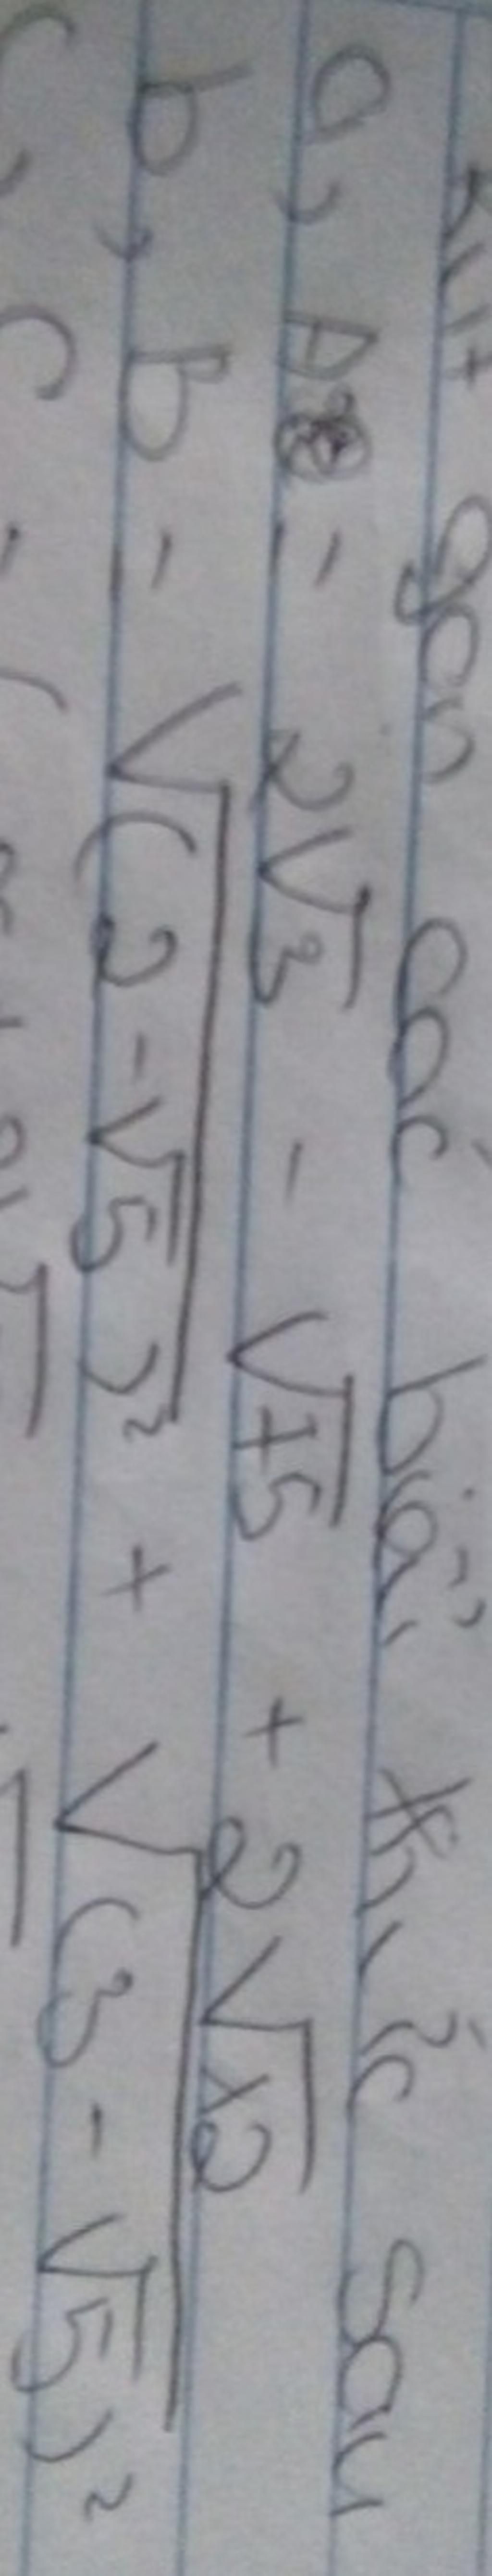 gọn các biểu thức sau
a, A = 2√3 - √75 + 2√12
b, B = √(2 - √5)² + √(3 - √5)²
c, C = (